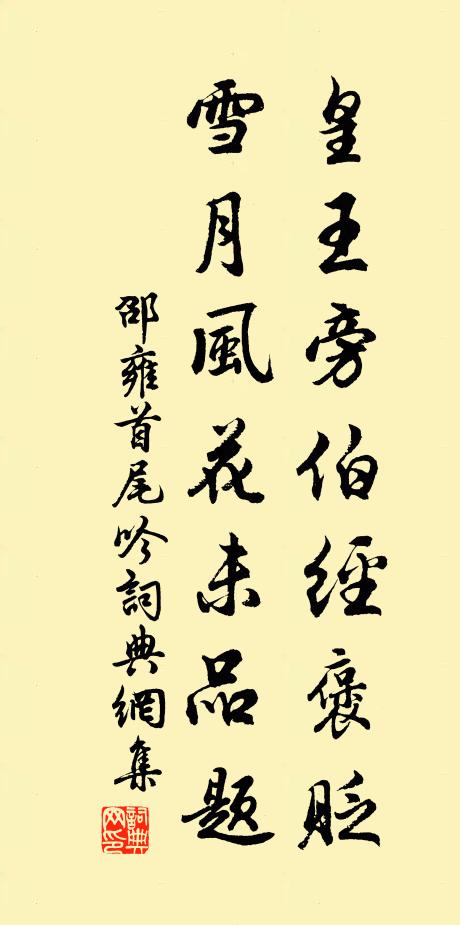 皇王旁伯經褒貶
雪月風花未品題
邵雍首尾吟詞典網集
詞典网印